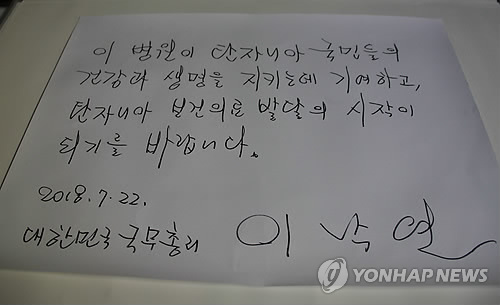 이 병원이 탄자니아 국민들의
건강과 생명을 지키는데 기여하고,
탄자니아 보건의료 발달의 시작이
되기를 바랍니다.
2018.7.22.
대한민국 국무총리 이낙연
YONHAP NEWS